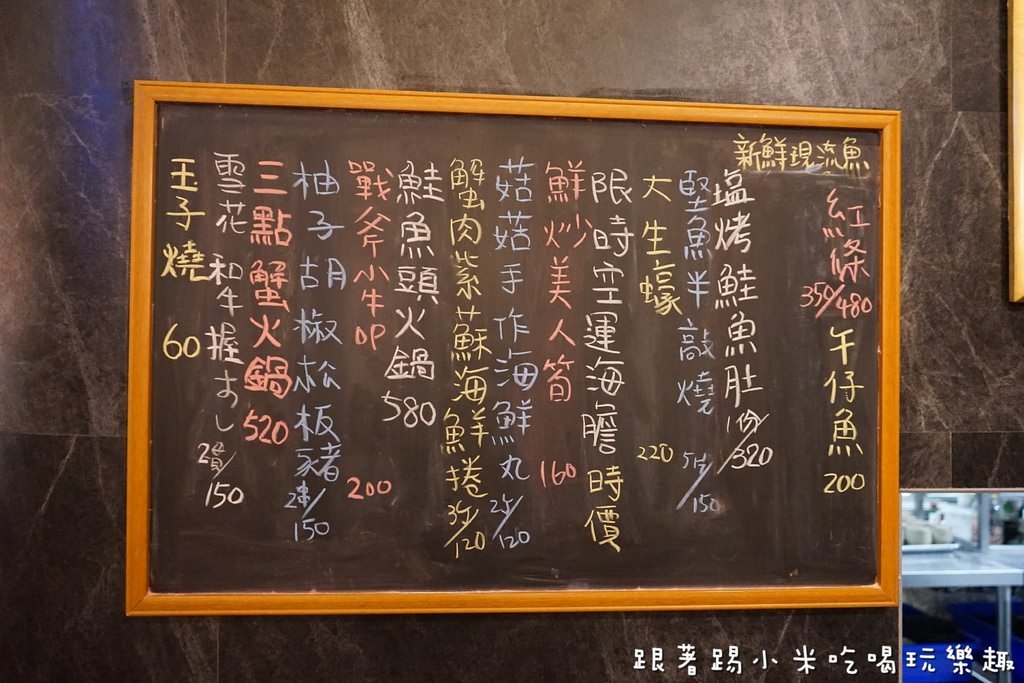 新鮮現流魚
紅條 350/480
午仔魚 200
塩烤鮭魚肚 1份/320
堅魚半敲燒 5片/150
大生蠔 220
限時空運海膽時價
鮮炒美人筍 160
菇菇手作海鮮丸 2片/120
蟹肉紫蘇海鮮捲 3片/120
鮭魚頭火鍋 580
戰斧小牛OP 200
柚子胡椒松板豬 2串/150
三點蟹火鍋 520
雪花和牛握すし 2貫/150
玉子燒 60
跟著踢小米吃喝玩樂趣